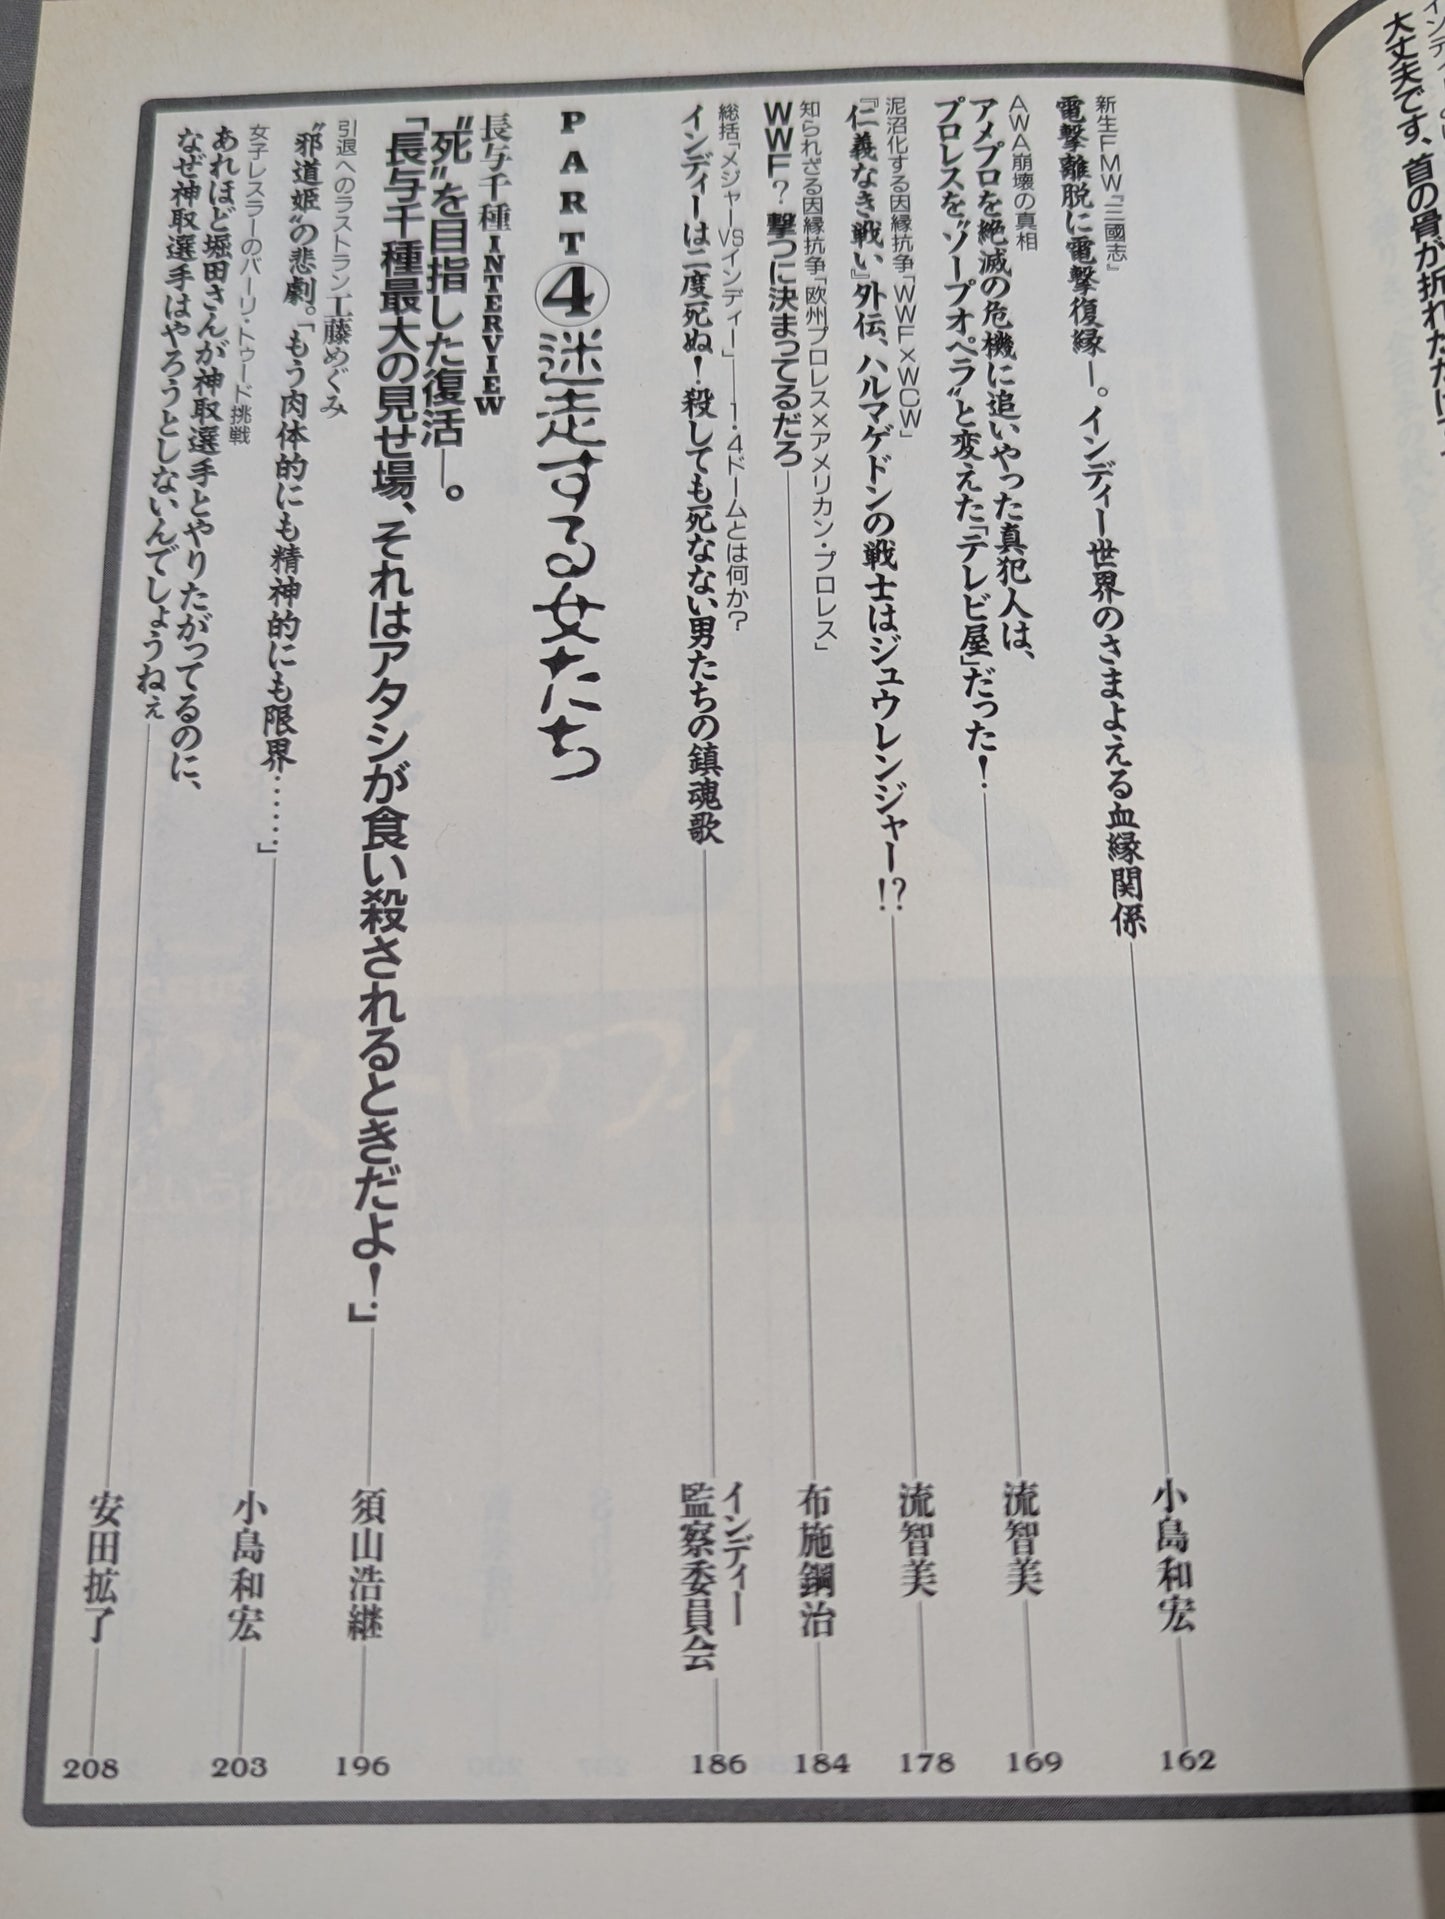 大丈夫です、首の骨が折れただけで
新生FMW「三國志」
電撃離脱に電撃復縁―。インディー世界のさまよえる血縁関係
小島和宏
162
AWA崩壊の真相
アメプロを絶滅の危機に追いやった真犯人は、
プロレスを"ソープオペラ"と変えた「テレビ屋」だった！
流智美
169
泥沼化する因縁抗争「WWF×WCW」
『仁義なき戦い』外伝、ハルマゲドンの戦士はジュウレンジャー!?
流智美
178
知られざる因縁抗争「欧州プロレス×アメリカン・プロレス」
WWF？撃つに決まってるだろ
布施鋼治
184
総括「メジャーVSインディー」――1・4ドームとは何か？
インディーは二度死ぬ！殺しても死なない男たちの鎮魂歌
インディー
監察委員会
186
PART④迷走する女たち
長与千種INTERVIEW
"死"を目指した復活―。
「長与千種最大の見せ場、それはアタシが食い殺されるときだよ！」
須山浩継
196
引退へのラストラン工藤めぐみ
"邪道姫"の悲劇。「もう肉体的にも精神的にも限界……」
小島和宏
203
女子レスラーのバーリ・トゥード挑戦
あれほど堀田さんが神取選手とやりたがってるのに、
なぜ神取選手はやろうとしないんでしょうねぇ
安田拡了
208